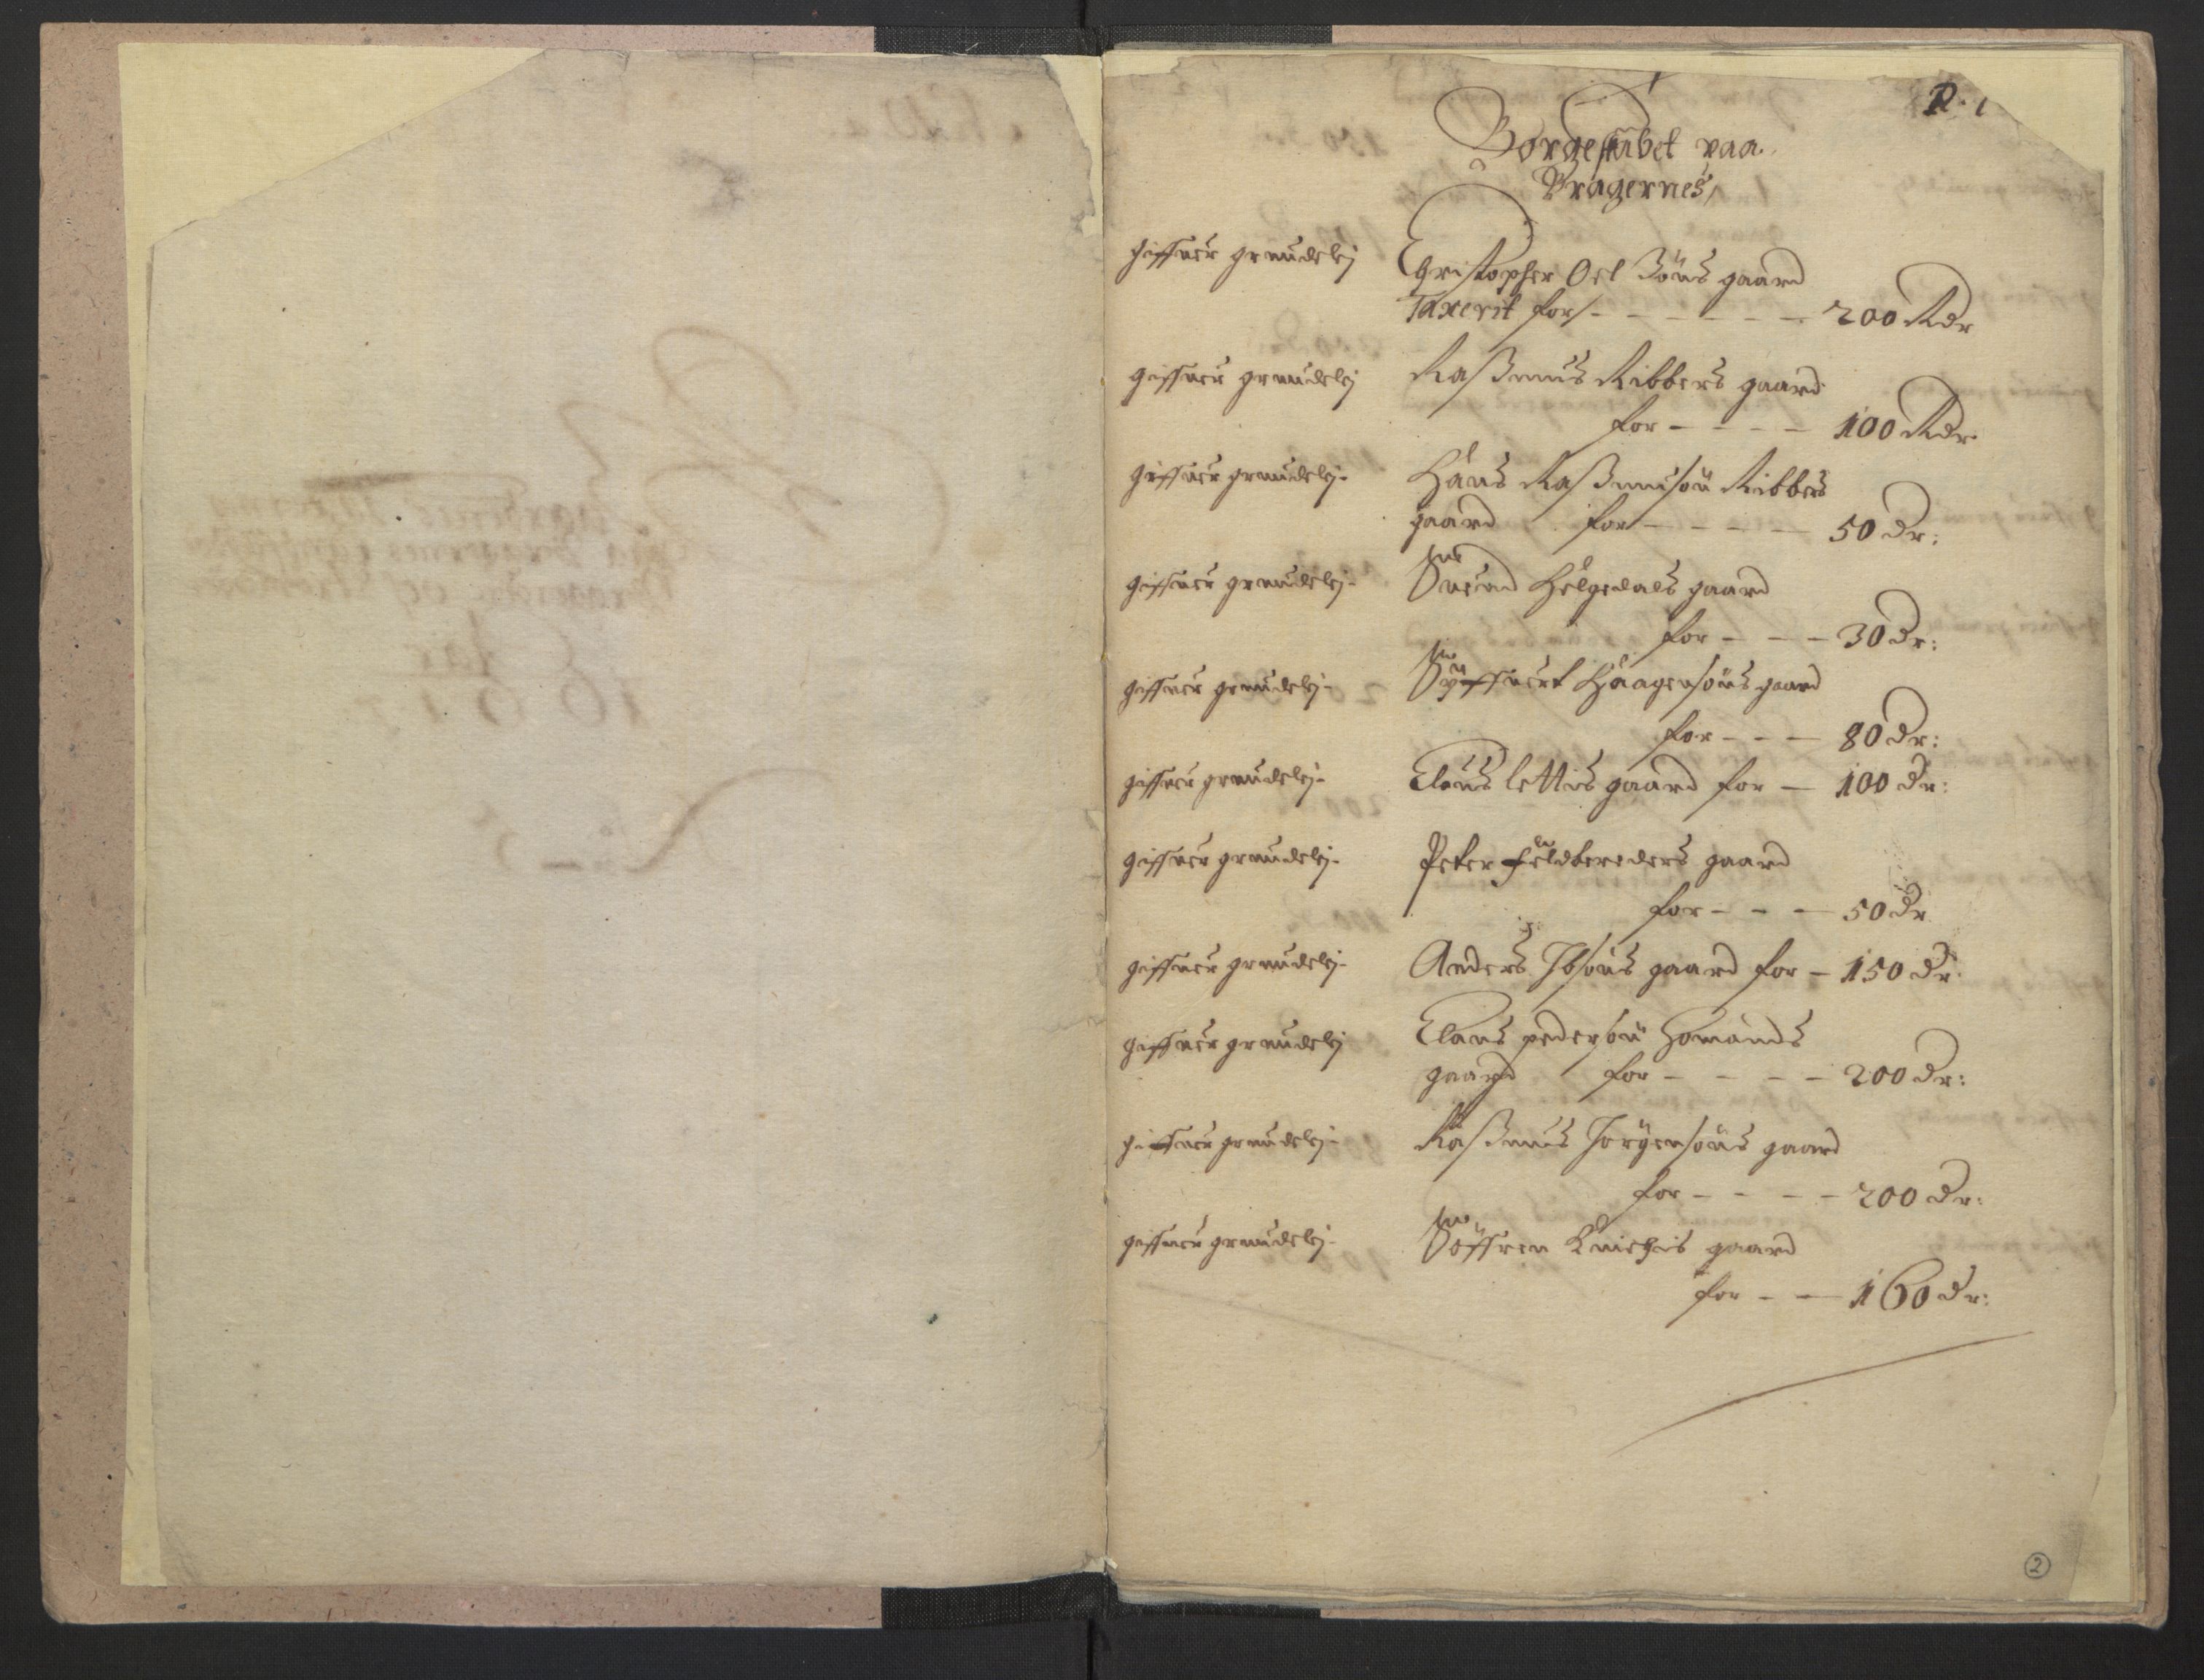 P. 1
Borgeskabet paa
Bragernes,
giffuer grundelej Christopher Oelsöns gaard
Taxerit for - - - - - - 200 Rdr
giffuer grundelej Rassmus Ribbers gaard
for - - - - 100 Rdr
giffuer grundelej. Hans Rassmusön Ribbers
gaard for - - - - - 50 dr:
giffuer grundelej. Suend Helgedals gaard
for - - - 30 dr:
giffuer grundelej. Syffuert Haagensöns gaard
for - - - 80 dr:
giffuer grundelej. Claus lettis gaard for - 100 dr:
giffuer grundelej. Peter feldbereders gaard
for - - - 50 dr
giffuer grundelej. Anders Ibsöns gaard for - 150 dr.
giffuer grundelej Claus pedersön Homands
gaard for - - - - 200 dr:
giffuer grundelej. Rassmus Jörgensöns gaard
for - - - - 200 dr:
giffuer grundelej. Söffren gaard
for - - 160 dr:
2